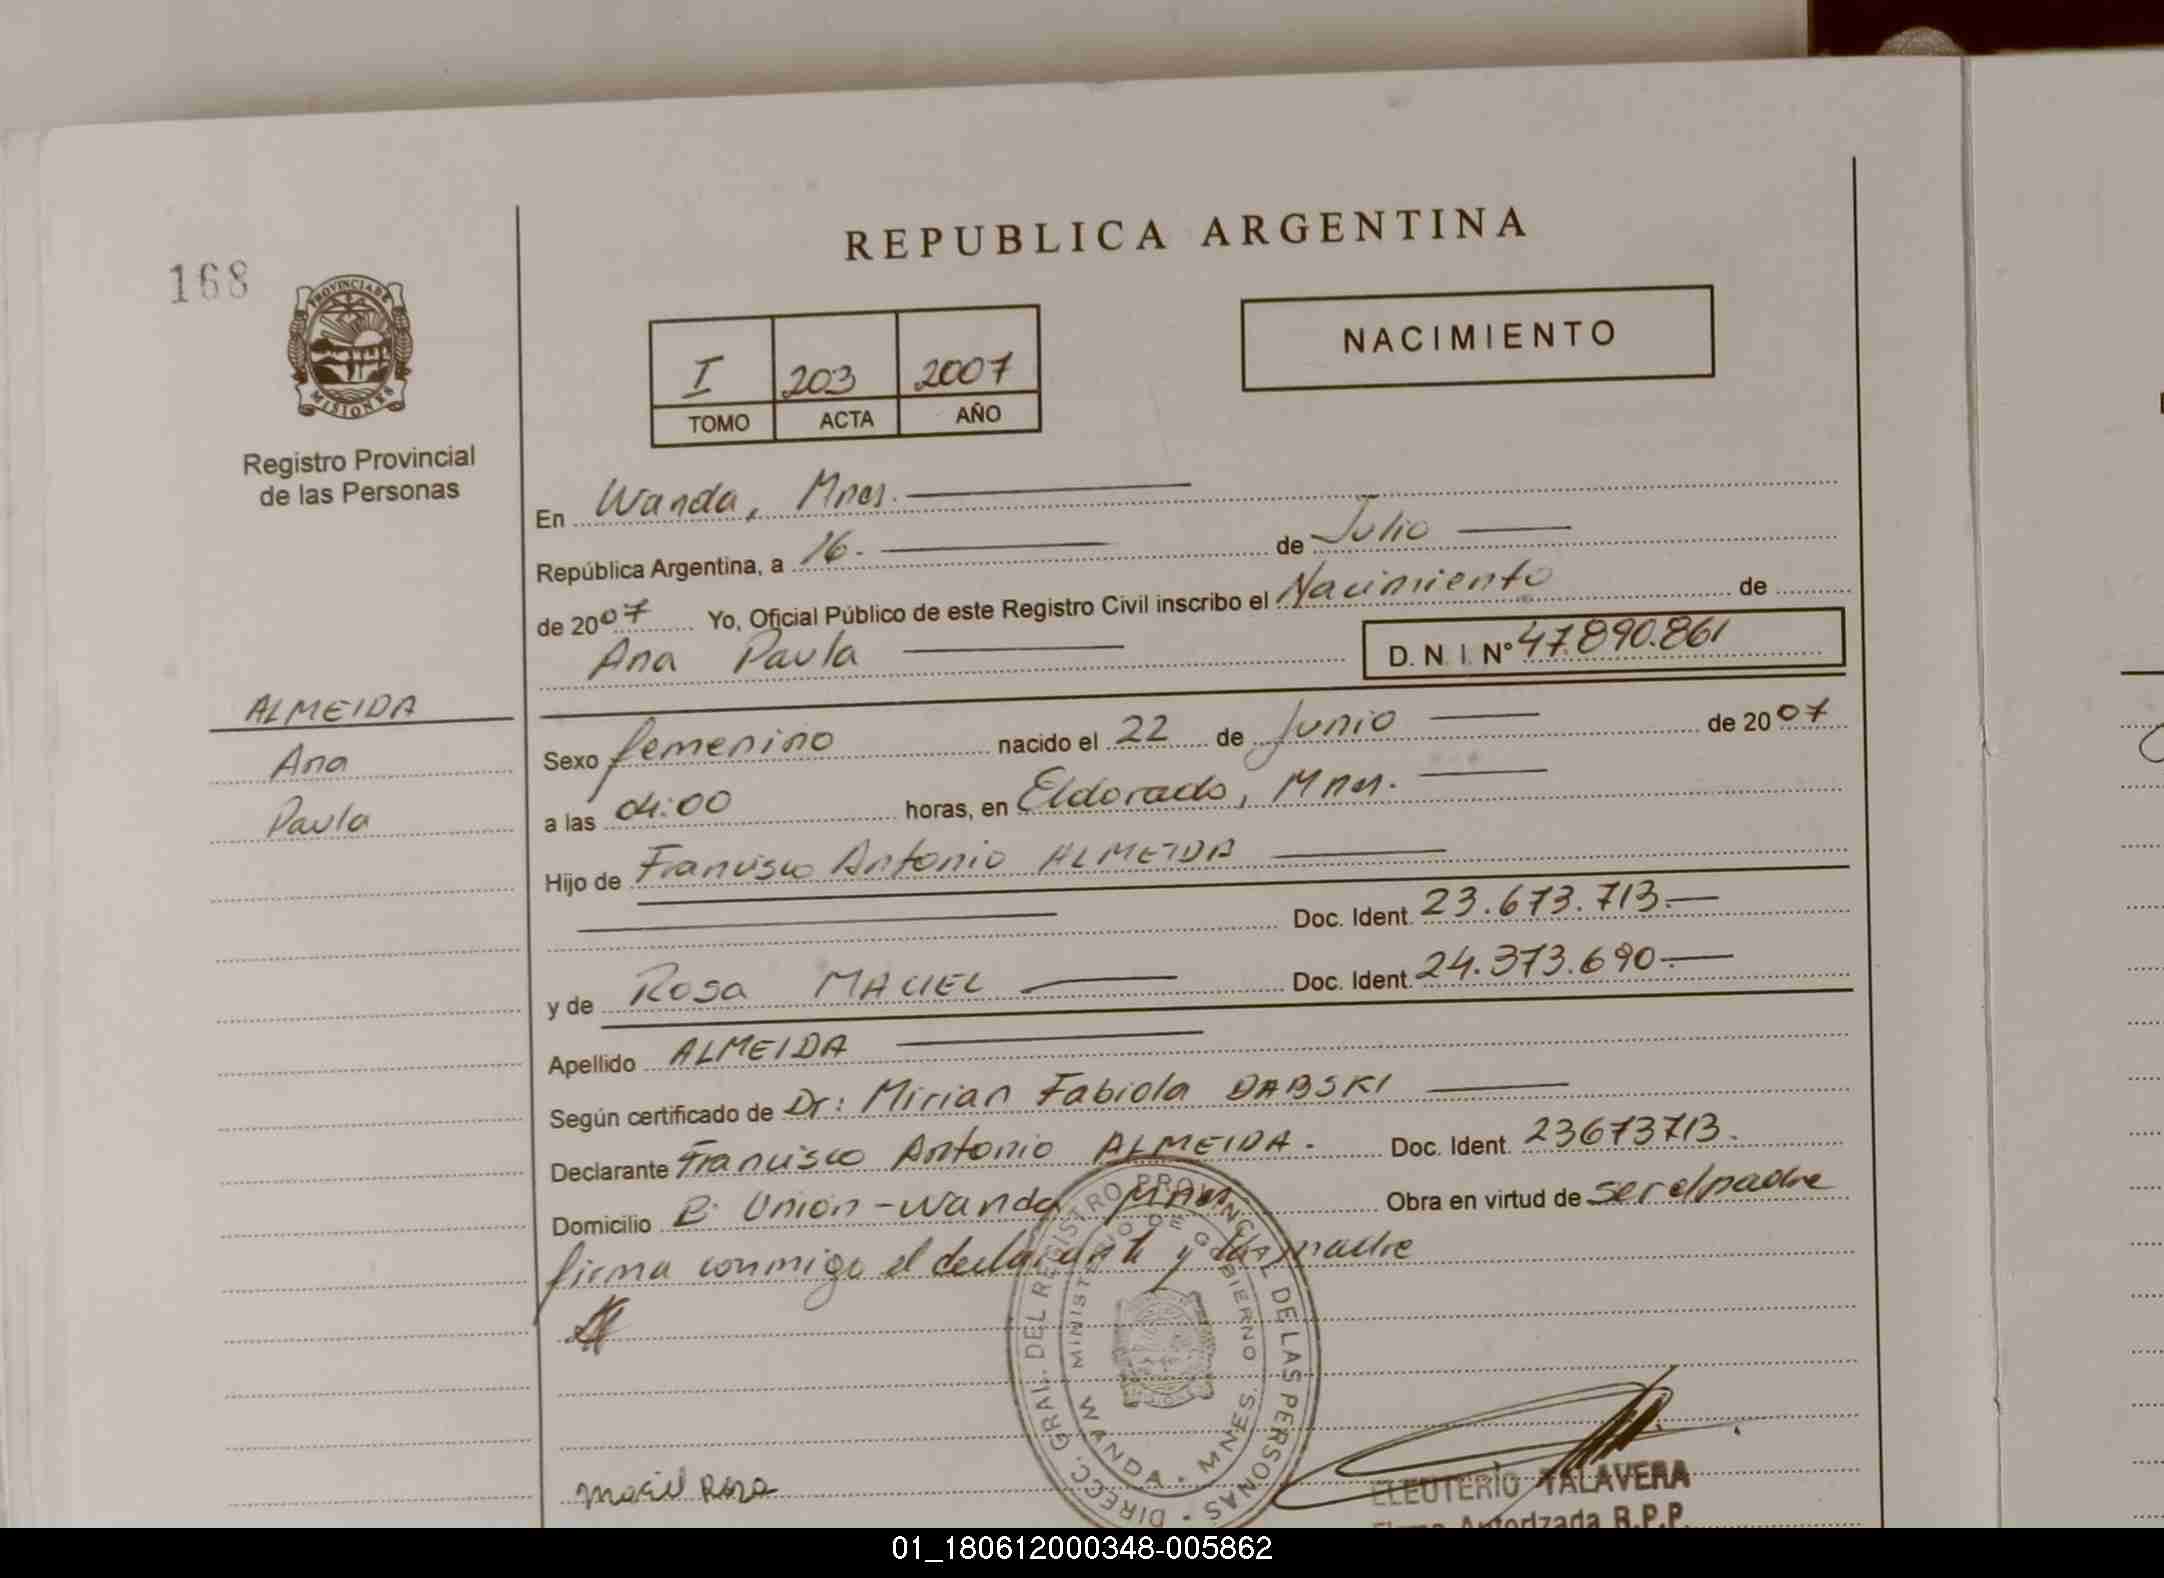 168
PROVINCIA DE
MISIONES
Registro Provincial
de las Personas
ALMEIDA
Ana
Paula
REPUBLICA ARGENTINA
I 203 2007
TOMO ACTA AÑO
NACIMIENTO
En Wanda, Mnes.
República Argentina, a 16. de Julio
de 2007 Yo, Oficial Público de este Registro Civil inscribo el Nacimiento de
Ana Paula D. N. I. N° 47.890.861
Sexo femenino nacido el 22 de Junio de 2007
a las 04:00 horas, en Eldorado, Mnes.
Hijo de Francisco Antonio ALMEIDA
Doc. Ident. 23.673.713.
y de Rosa MACIEL Doc. Ident. 24.373.690
Apellido ALMEIDA
Según certificado de Dr: Mirian Fabiola DABSKI
Declarante Francisco Antonio ALMEIDA. Doc. Ident. 23673713.
Domicilio B: Unión - Wanda Mnes Obra en virtud de ser el padre
firma conmigo el declarante y la madre
DIRECC. GRAL. DEL REGISTRO PROVINCIAL DE LAS PERSONAS
MINISTERIO DE GOBIERNO
WANDA - MNES.
Maciel Rosa
ELEUTERIO TALAVERA
Firma Autorizada R.P.P.
01_180612000348-005862